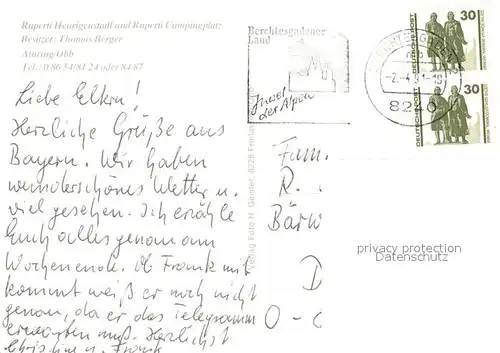 Ruperti Heurigenstadl und Ruperti Campingplatz
Besitzer: Thomas Berger
Ainring/Obb
Tel.: 0 86 54/81 24 oder 84 87
Liebe Eltern!
Herzliche Grüße aus
Bayern. Wir haben
wunderschönes Wetter u.
viel gesehen. Ich erzähle
Euch alles genau am
Wochenende. Ob Frank mit
kommt weiß er noch nicht
genau, da er das Telegramm
erwarten muß. Herzlichst
Christine u. Frank
Verlag Foto H. Geisler, 8228 Freilas
Berchtesgadener
Land
Juwel
der Alpen
8240
DEUTSCHE POST
30
DEUTSCHE POST
30
Fam.
R.
Bärw
D
O-
privacy protection
Datenschutz